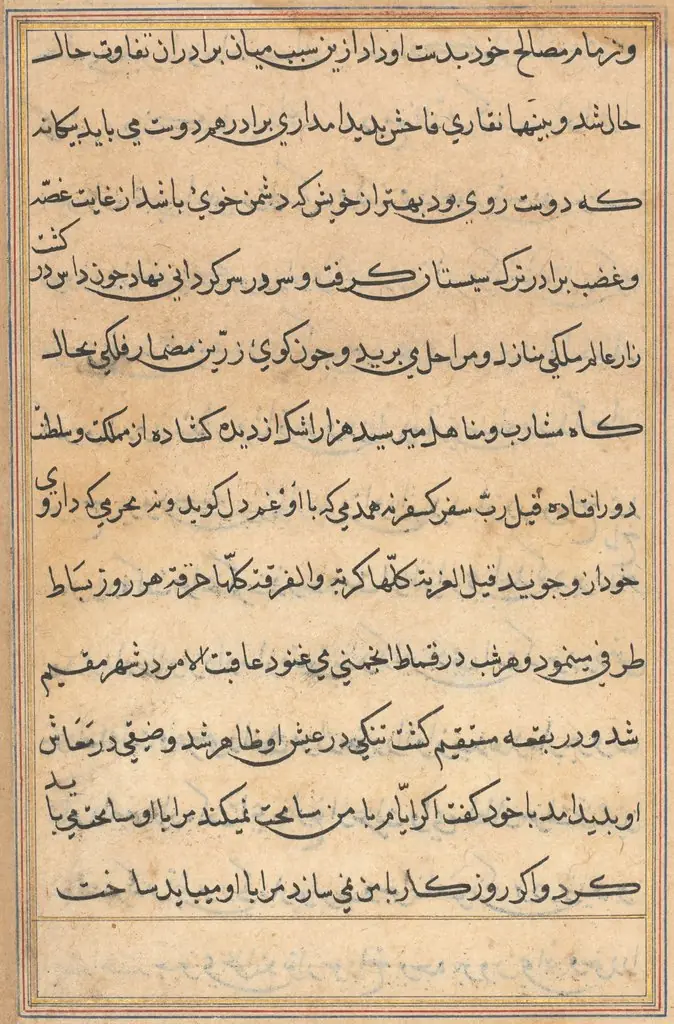 وزمام مصالح خود بدست او داد ازین سبب میان برادران تفاوت حال
حال شد و بینهما نقاری فاحش بدید امد اری برادر هم دوست می باید بیکانه
که دوست روی بود بهتر از خویش که دشمن خوی باشد از غایت غصّه
و غضب برادر ترک سیستان کرفت و سر در سرکردانی نهاد جون داس در کشت
زار عالم ملکی منازل و مراحل می برید و جون کوی زرّین مضمار فلکی بحال
کاه مشارب و مناهل میرسید هزار اشک از دیده کشاده از مملکت و سلطنت
دور افتاده قیل ربّ سفر کسفر نه همدمی که با او غم دل کوید و نه محرمی که داروی
خود از و جوید قیل الغربة کلّها کربة والفرقة کلّها حرقة هر روز بساط
طرفی میتمود و هر شب در قماط انجمنی می غنود عاقبت الامر در شهر مقیم
شد و در بقعه مستقیم کشت تنکی در عیش او ظاهر شد و ضیقی در معاش
او بدید امد با خود کفت اکر ایّام با من سامحت نمیکند مرا با او سامحت می باید
کرد و اکر روزکار با من نمی سازد مرا با او میباید ساخت